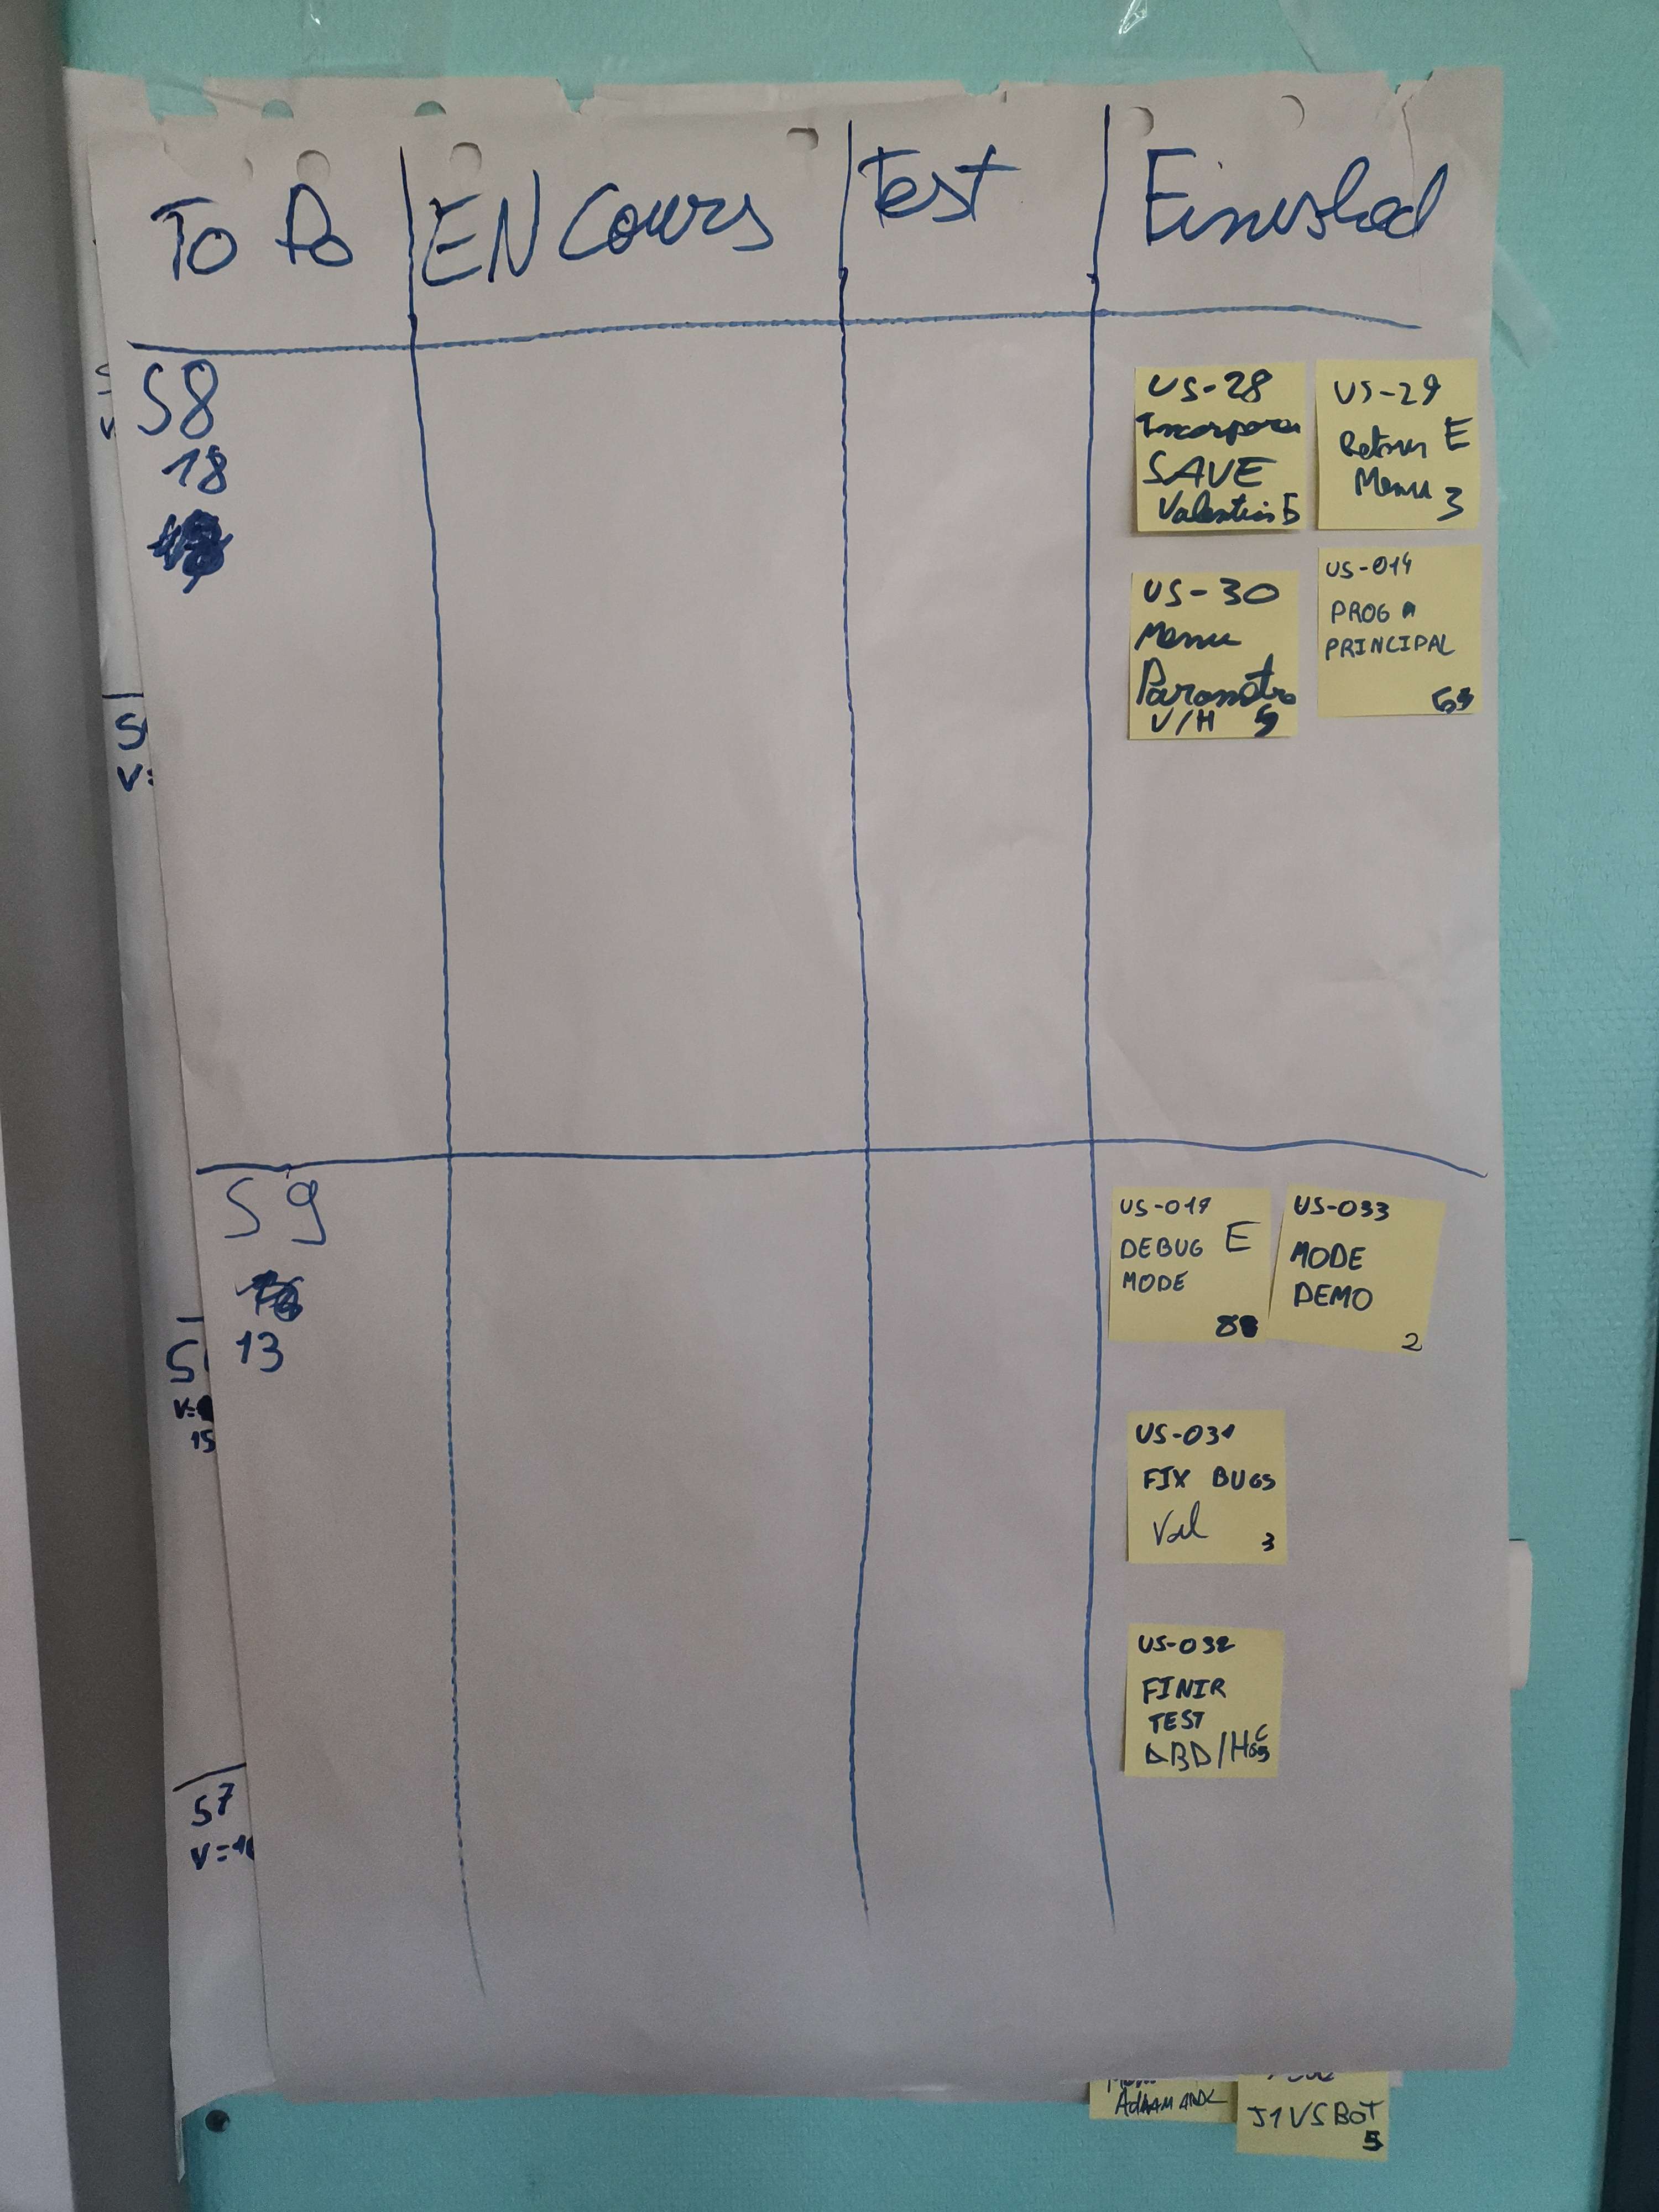 To Do
EN Cours
Test
Finished
S8
18
US-28
Incorporer
SAVE
Valentin 5
US-29
Retour E
Menu 3
US-30
Menu
Paramètre
V/H 5
US-014
PROG
PRINCIPAL
5
S9
13
US-019
DEBUG E
MODE
8
US-033
MODE
DEMO
2
US-031
FIX BUGS
Val 3
US-032
FINIR
TEST
ABD/H
S7
V=1
15
J1 VS BOT
5